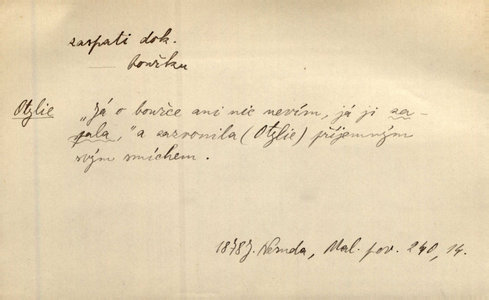 zaspati dok.
bouřku
Otylie „Já o bouřce ani nic nevím, já ji za-
spala," a zazvonila (Otylie) příjemným
svým smíchem.
1878 J. Neruda, Mal. pov. 240, 14.